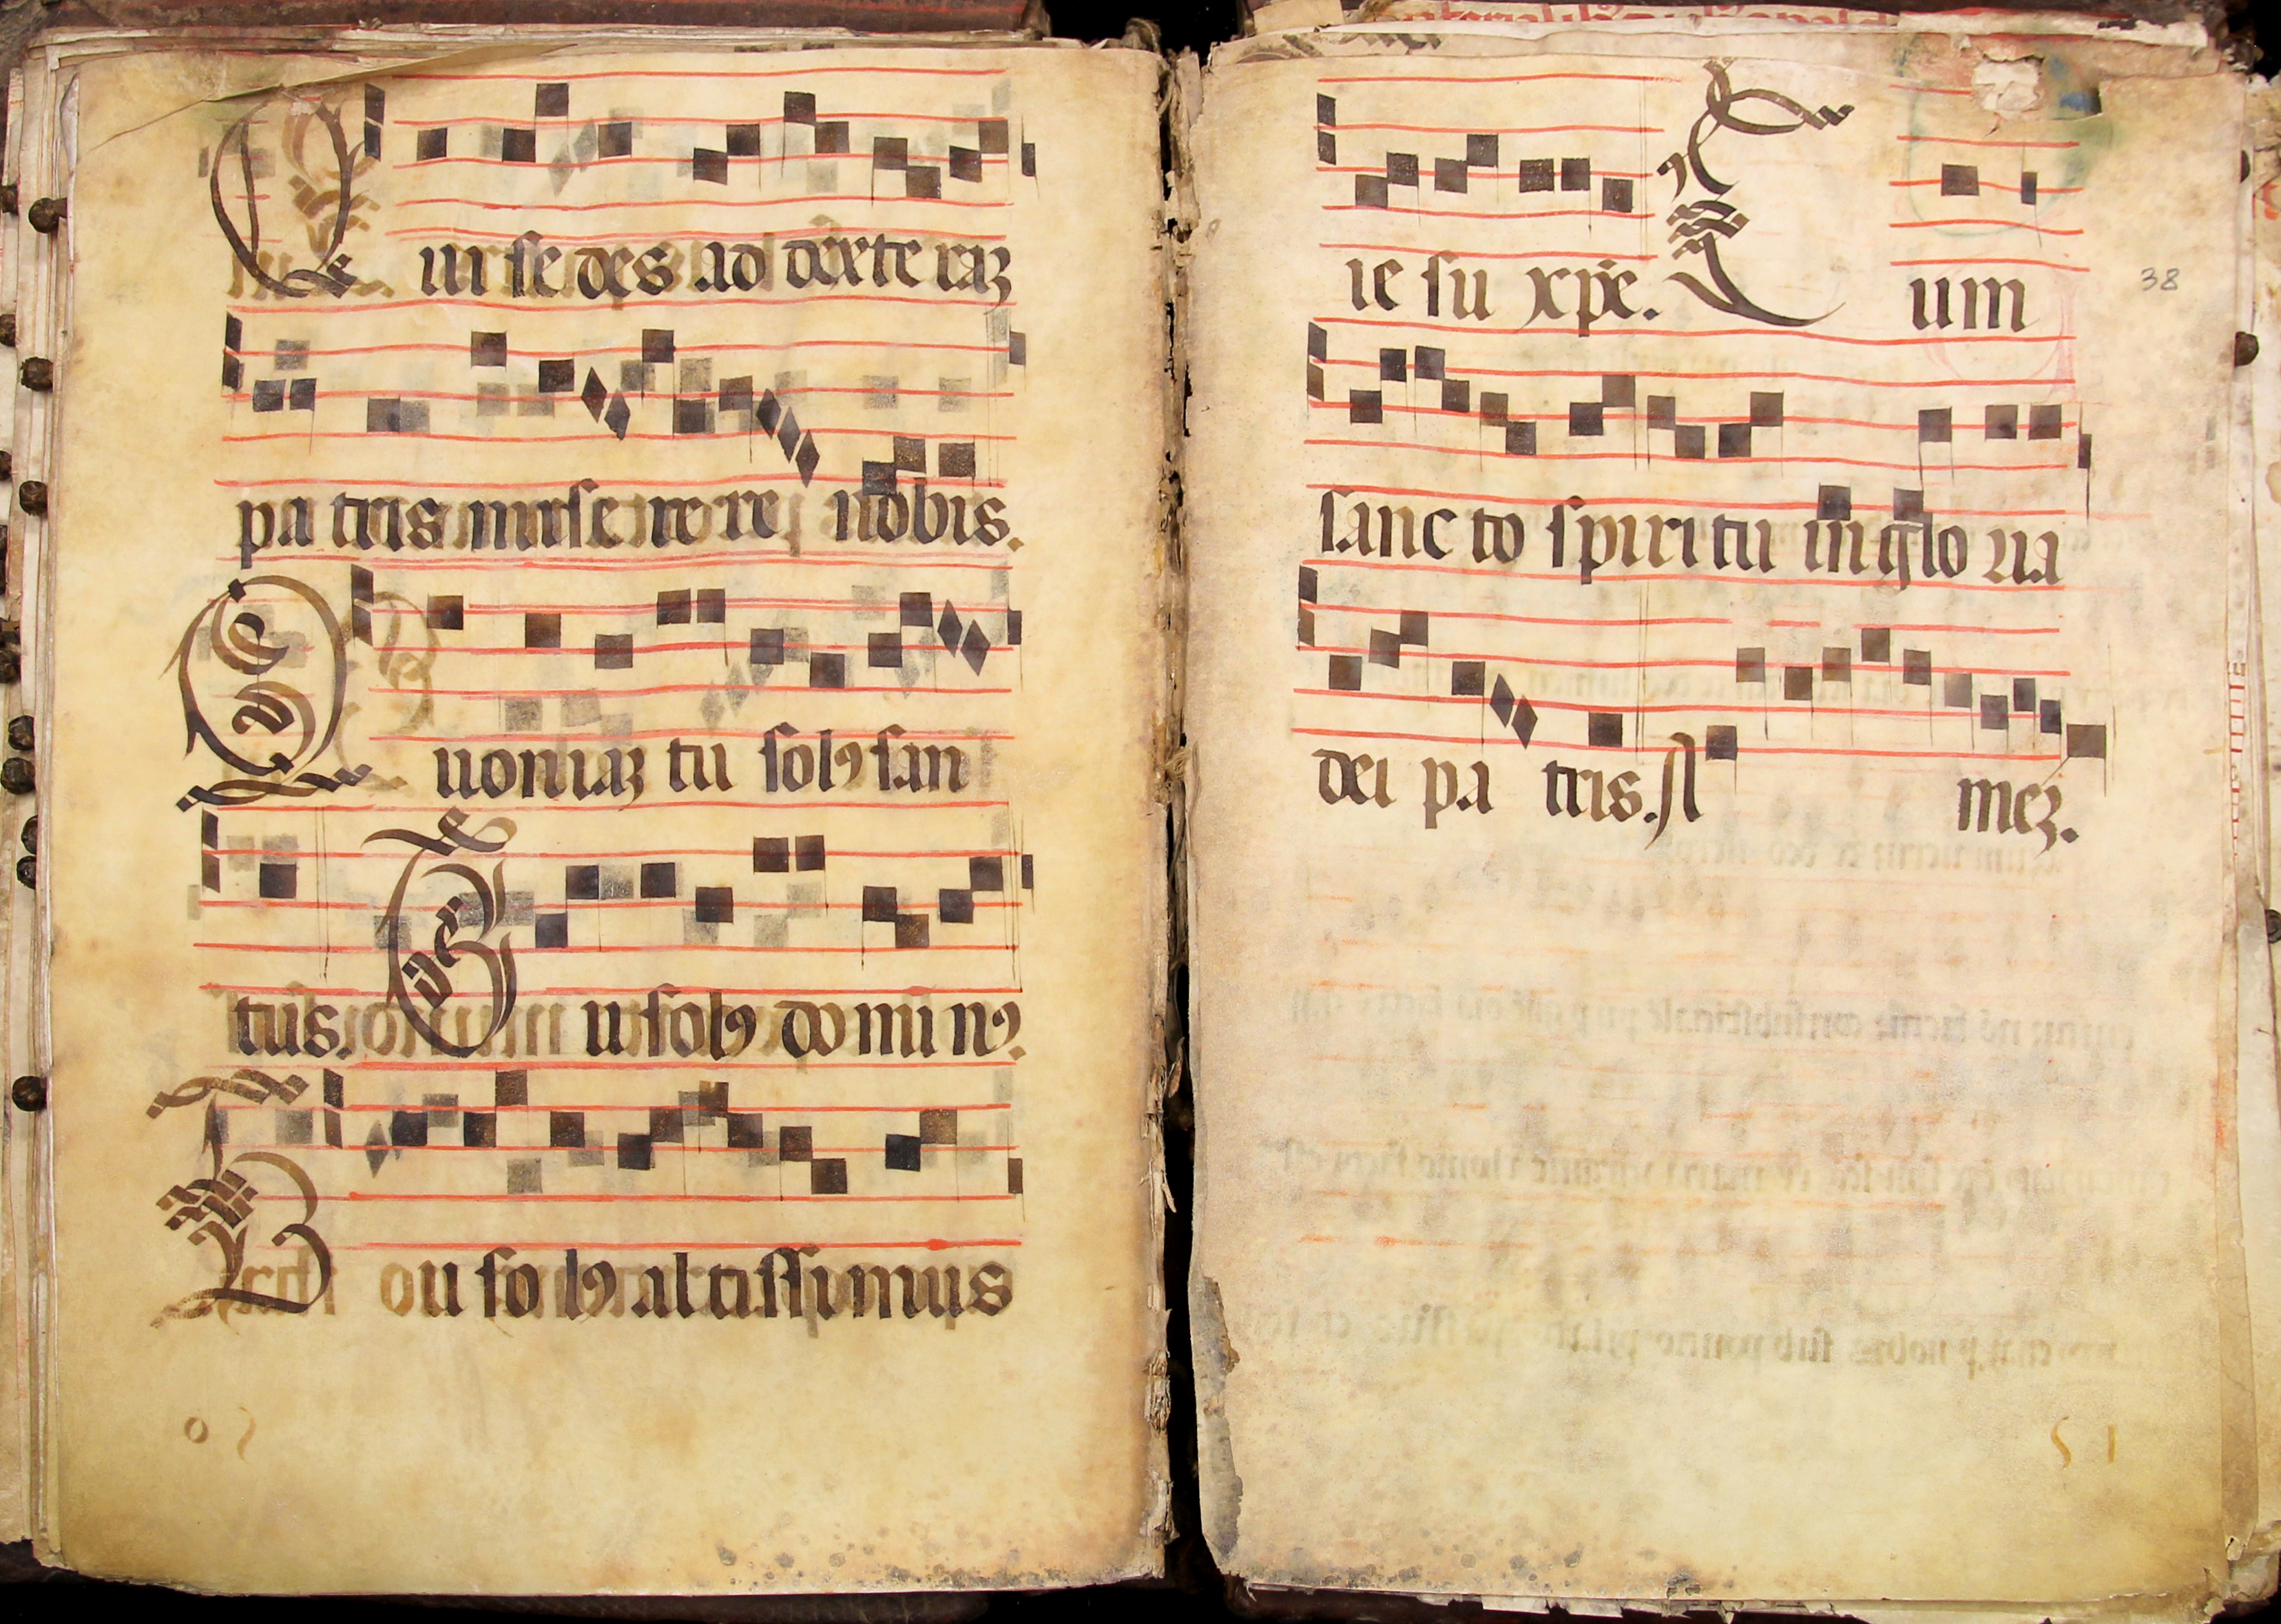 Qui se des ad dexte raz
pa tris mise re re nobis.
Quoniaz tu solꝰ san
tus. Tu solꝰ do mi nꝰ.
Tu so lꝰ al tissimus
ie su xpe. Cum
38
sanc to spiri tu in glo ria
dei pa tris. A mez.